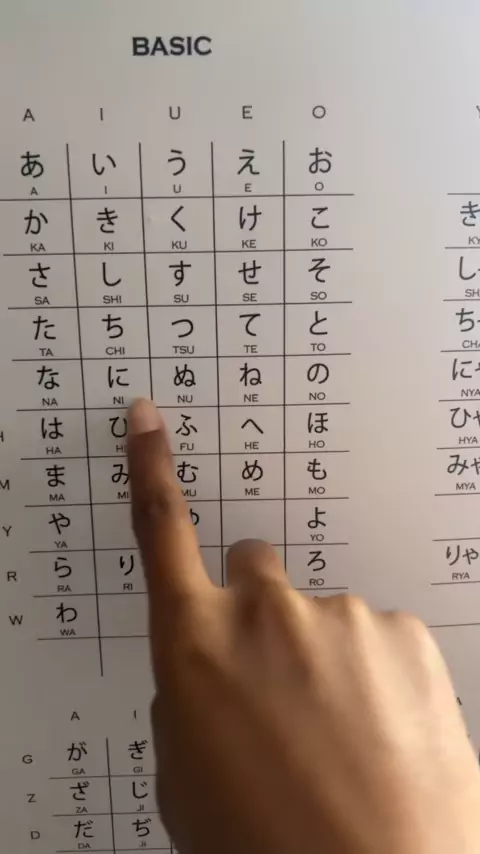 BASIC
A I U E O
あ い う え お
A I U E O
か き く け こ
KA KI KU KE KO
さ し す せ そ き
SA SHI SU SE SO
た ち つ て と
TA CHI TSU TE TO
な に ぬ ね の
NA NI NU NE NO NYA
は ふ へ ほ ひゃ
HA FU HE HO HYA
M ま み む め も みゃ
MA MI MU ME MO MYA
Y や よ
YA YO
R ら り ろ りゃ
RA RI RO RYA
W わ
WA
A I
G が ぎ
GA GI
Z ざ じ
ZA JI
D だ ぢ
DA JI